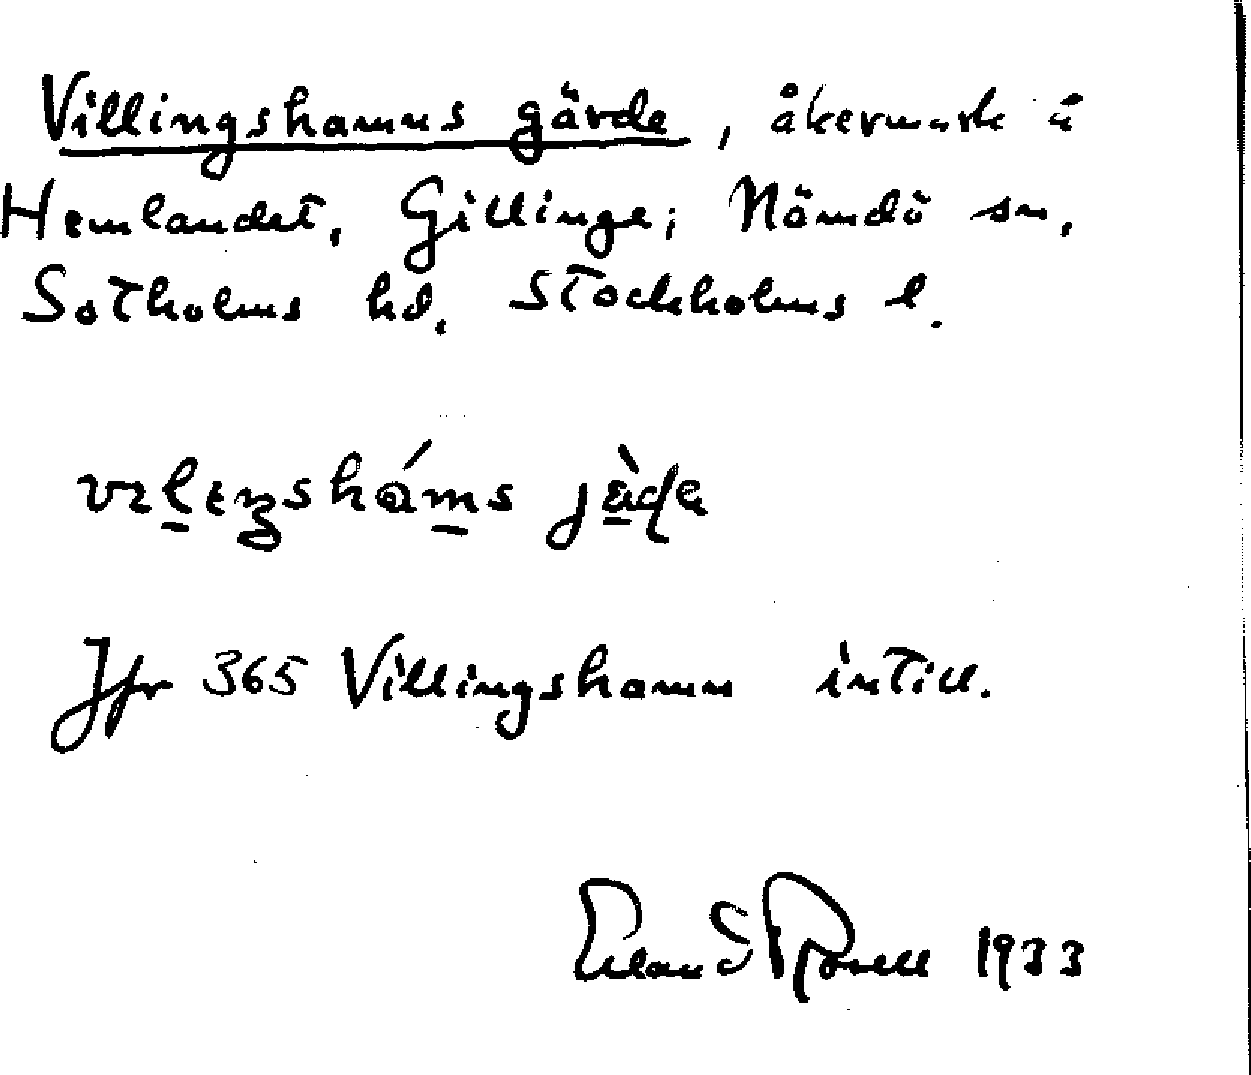 Villingshamns gärde, åkermark å
Hemlandet, Gillinge; Nämdö sn,
Sotholms hd. Stockholms l.
Jfr 365 Villingshamn intill.
Erland Rosell 1933